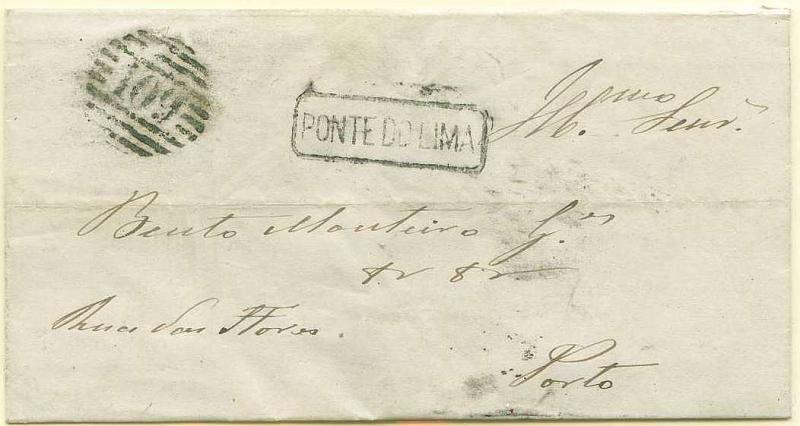 109
PONTE DO LIMA
Illmo. Senr.
Bento Monteiro G.es
&r &r
Rua das Flores.
Porto